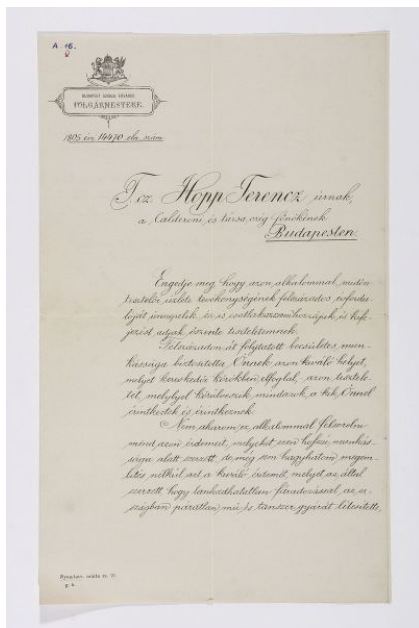 A. 16.
BUDAPEST SZÉKES FŐVÁROS
POLGÁRMESTERE.
1895 évi 14470 eln. szám
T. cz. Hopp Terencz úrnak,
a Calderoni és társa czég főnökének
Budapesten.
Engedje meg hogy azon alkalommal, midőn
tisztelői üzlete tevékenységének félszázados évfordu-
lóját ünneplik, én is csatlakozzam hozzájuk és kife-
jezést adjak őszinte tiszteletemnek.
Félszázadon át folytatott becsületes mun-
kássága biztosította Önnek azon kiváló helyet,
melyet kereskedői körökben elfoglal, azon tisztele-
tet, melylyel körülveszik mindazok, a kik Önnel
érintkeztek és érintkeznek.
Nem akarom ez alkalommal felsorolni
mind azon érdemeit, melyeket ezen hosszú munkás-
sága alatt szerzett, de még sem hagyhatom megem-
lítés nélkül azt a kiváló érdemét, melyet az által
szerzett, hogy lankadhatatlan fáradozással, az or-
szágban páratlan mű és tanszer gyárát létesítette,